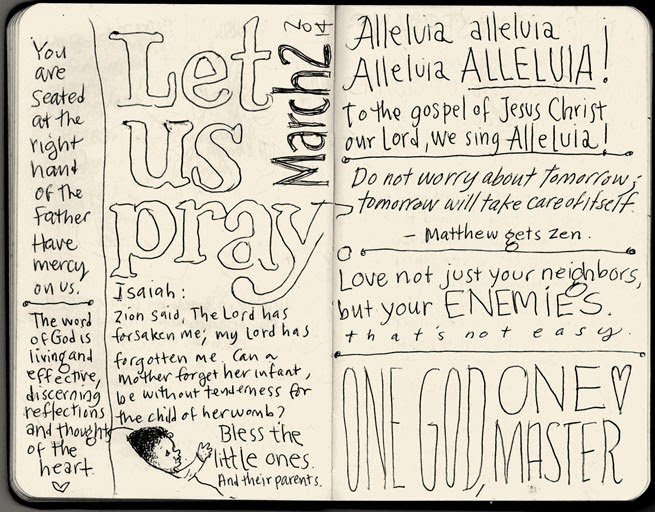 You
are
Seated
at the
right
hand
of the
Father
Have
mercy
on us.
The word
of God is
living and
effective,
discerning
reflections
and thoughts
of the
heart.
Let
us
pray
March 2
2014
Isaiah:
Zion said, The Lord has
forsaken me; my Lord has
forgotten me. Can a
mother forget her infant,
be without tenderness for
the child of her womb?
Bless the
little ones.
And their parents.
Alleluia alleluia
Alleluia ALLELUIA!
To the gospel of Jesus Christ
our Lord, we sing Alleluia!
Do not worry about tomorrow;
tomorrow will take care of itself.
- Matthew gets zen.
Love not just your neighbors,
but your ENEMIES.
that's not easy.
ONE GOD, ONE♡
MASTER